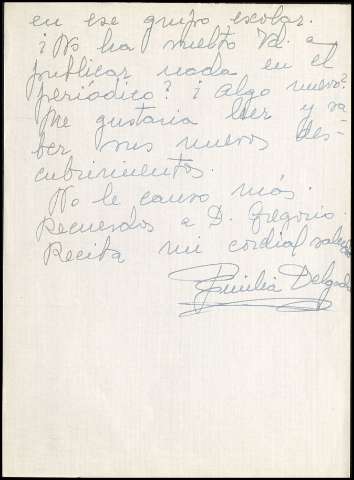 en ese grupo escolar.
¿No ha vuelto Vd. a
publicar nada en el
periódico? ¿Algo nuevo?
Me gustaria leer y sa-
ber sus nuevos des-
cubrimientos.
No le canso más.
Recuerdos a D. Gregorio.
Reciba mi cordial saludo
Emilia Delgado